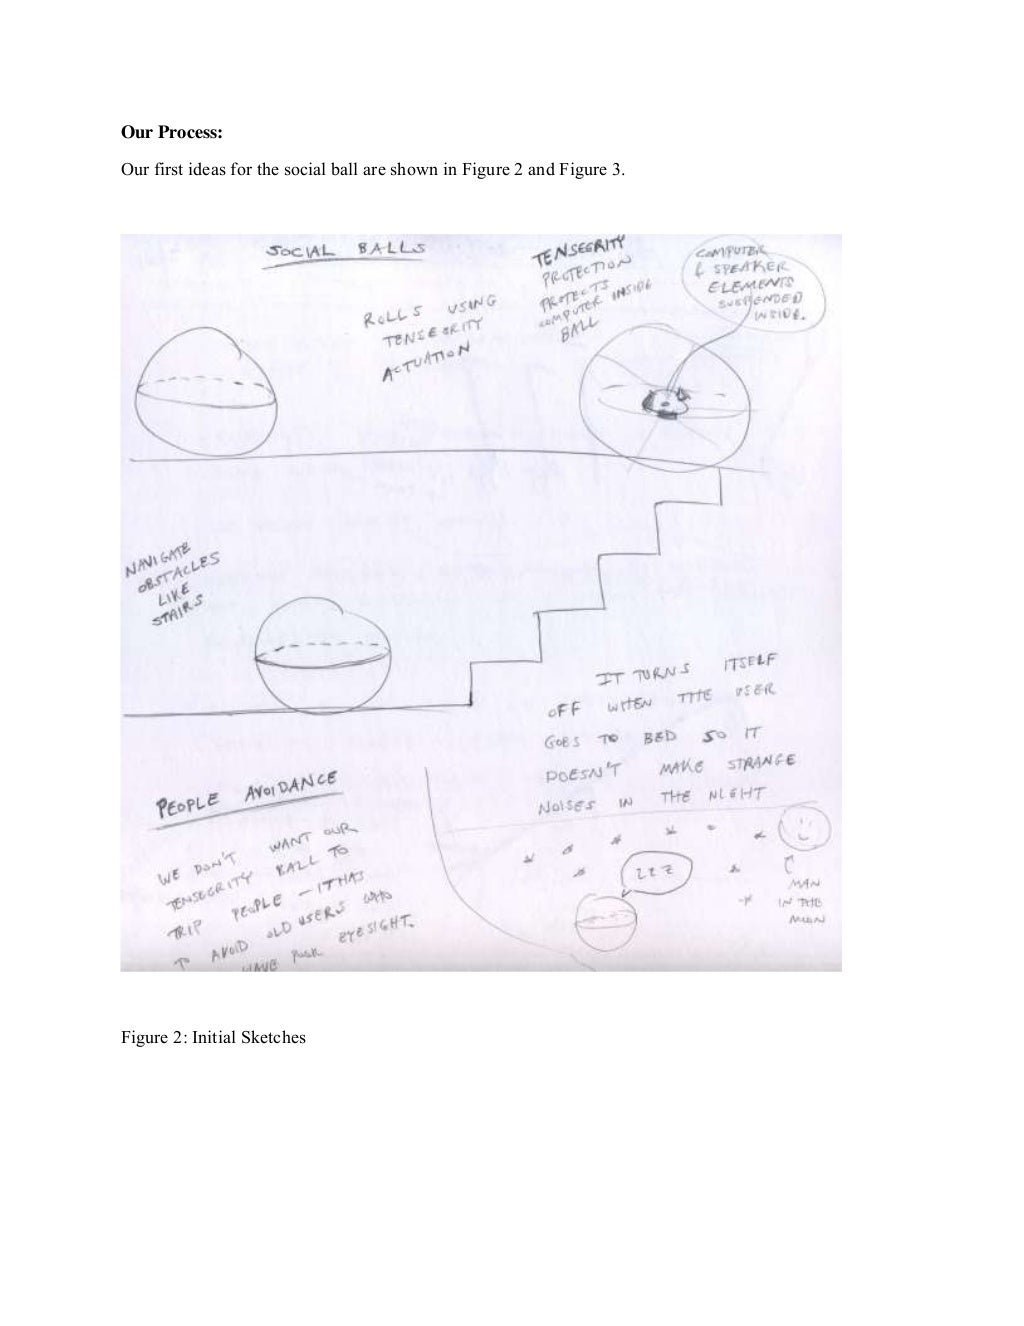 Our Process:
Our first ideas for the social ball are shown in Figure 2 and Figure 3.
SOCIAL BALLS
ROLLS USING
TENSEGRITY
ACTUATION
TENSEGRITY
PROTECTION
PROTECTS
COMPUTER INSIDE
BALL
COMPUTER
& SPEAKER
ELEMENTS
SUSPENDED
INSIDE.
NAVIGATE
OBSTACLES
LIKE
STAIRS
IT TURNS ITSELF
OFF WHEN THE USER
GOES TO BED SO IT
DOESN'T MAKE STRANGE
NOISES IN THE NIGHT
PEOPLE AVOIDANCE
WE DON'T WANT OUR
TENSEGRITY BALL TO
TRIP PEOPLE - IT HAS
TO AVOID OLD USERS WHO
HAVE POOR EYESIGHT.
ZZZ
MAN
IN THE
MOON
Figure 2: Initial Sketches